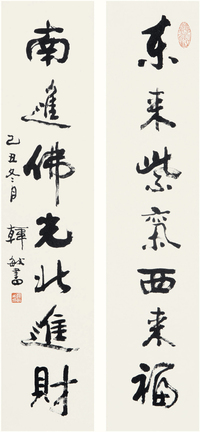 东来紫气西来福
南进佛光北进财
己丑冬月
韩敏书